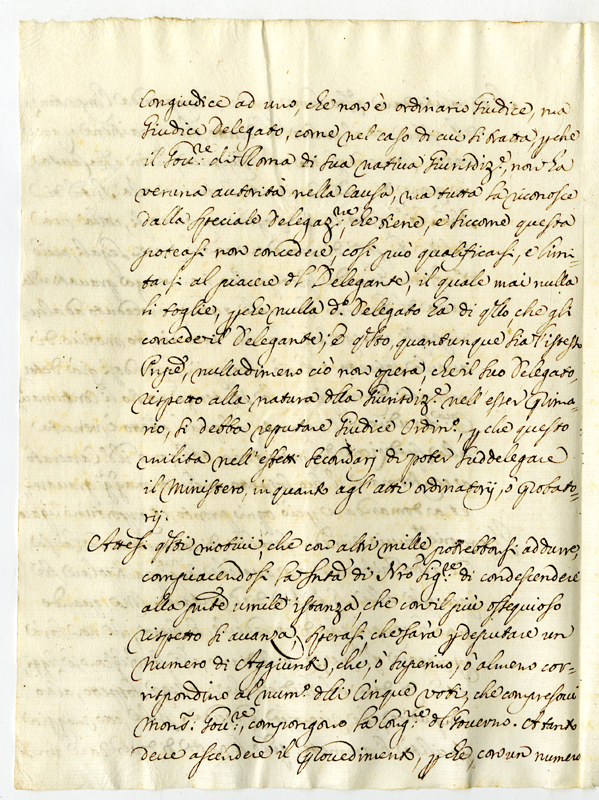 Congiudice ad uno, che non è ordinario Giudice, ma
Giudice delegato, come nel caso di cui si tratta, pche
il Gov.re di Roma di sua nativa Giurisdiz.e non ha
veruna autorità nella Causa, ma tutta la riconosce
dalla speciale Delegaz.ne, che tiene, e siccome questa
poteasi non concedere, così può qualificarsi, e limi-
tarsi al piacere dl Delegante, il quale mai nulla
li toglie, pche nulla d.o Delegato ha di qllo che gli
concede il Delegante; E qsto, quantunque sia l'istesso
Prñpe, nulladimeno ciò non opera, che il suo Delegato,
rispetto alla natura dlla Giurisdiz.e nell'esser prima-
rio, si debba reputare Giudice Ordin.o, pche questo
milita nell'effetti secondarj di poter suddelegare
il Ministero, in quanto agl'atti ordinatorij, o probato-
rij.
Attesi qsti motivi, che con altri mille potrebbonsi addurre,
compiacendosi la Sntà di Nrõ Sig.re di condescendere
alla pñte umile istanza, che con il più ossequioso
rispetto si avanza, sperasi, che sarà p deputare un
numero di Aggiunti, che, ò superino, ò almeno cor-
rispondino al num.o dlli Cinque voti, che compresovi
Mons.r Gov.re, compongono la Cong.ne dl Governo. A tanto
deve ascendere il provedimento, pche, con un numero